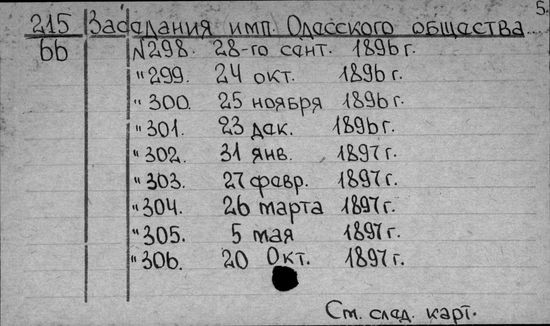 5.
215 Заседания имп. Одесского общества...
66 N298. 28-го сент. 1896 г.
" 299. 24 окт. 1896 г.
" 300. 25 ноября 1896 г.
" 301. 23 дек. 1896 г.
" 302. 31 янв. 1897 г.
" 303. 27 февр. 1897 г.
" 304. 26 марта 1897 г.
" 305. 5 мая 1897 г.
" 306. 20 Окт. 1897 г.
См. след. карт.